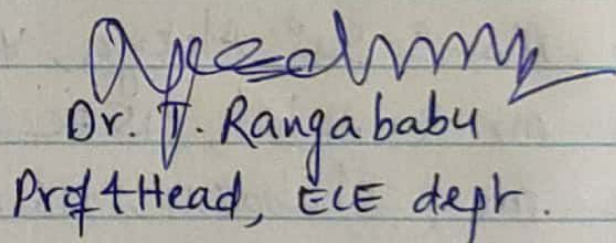 Dr. T. Rangababu
Prof & Head, ECE dept.